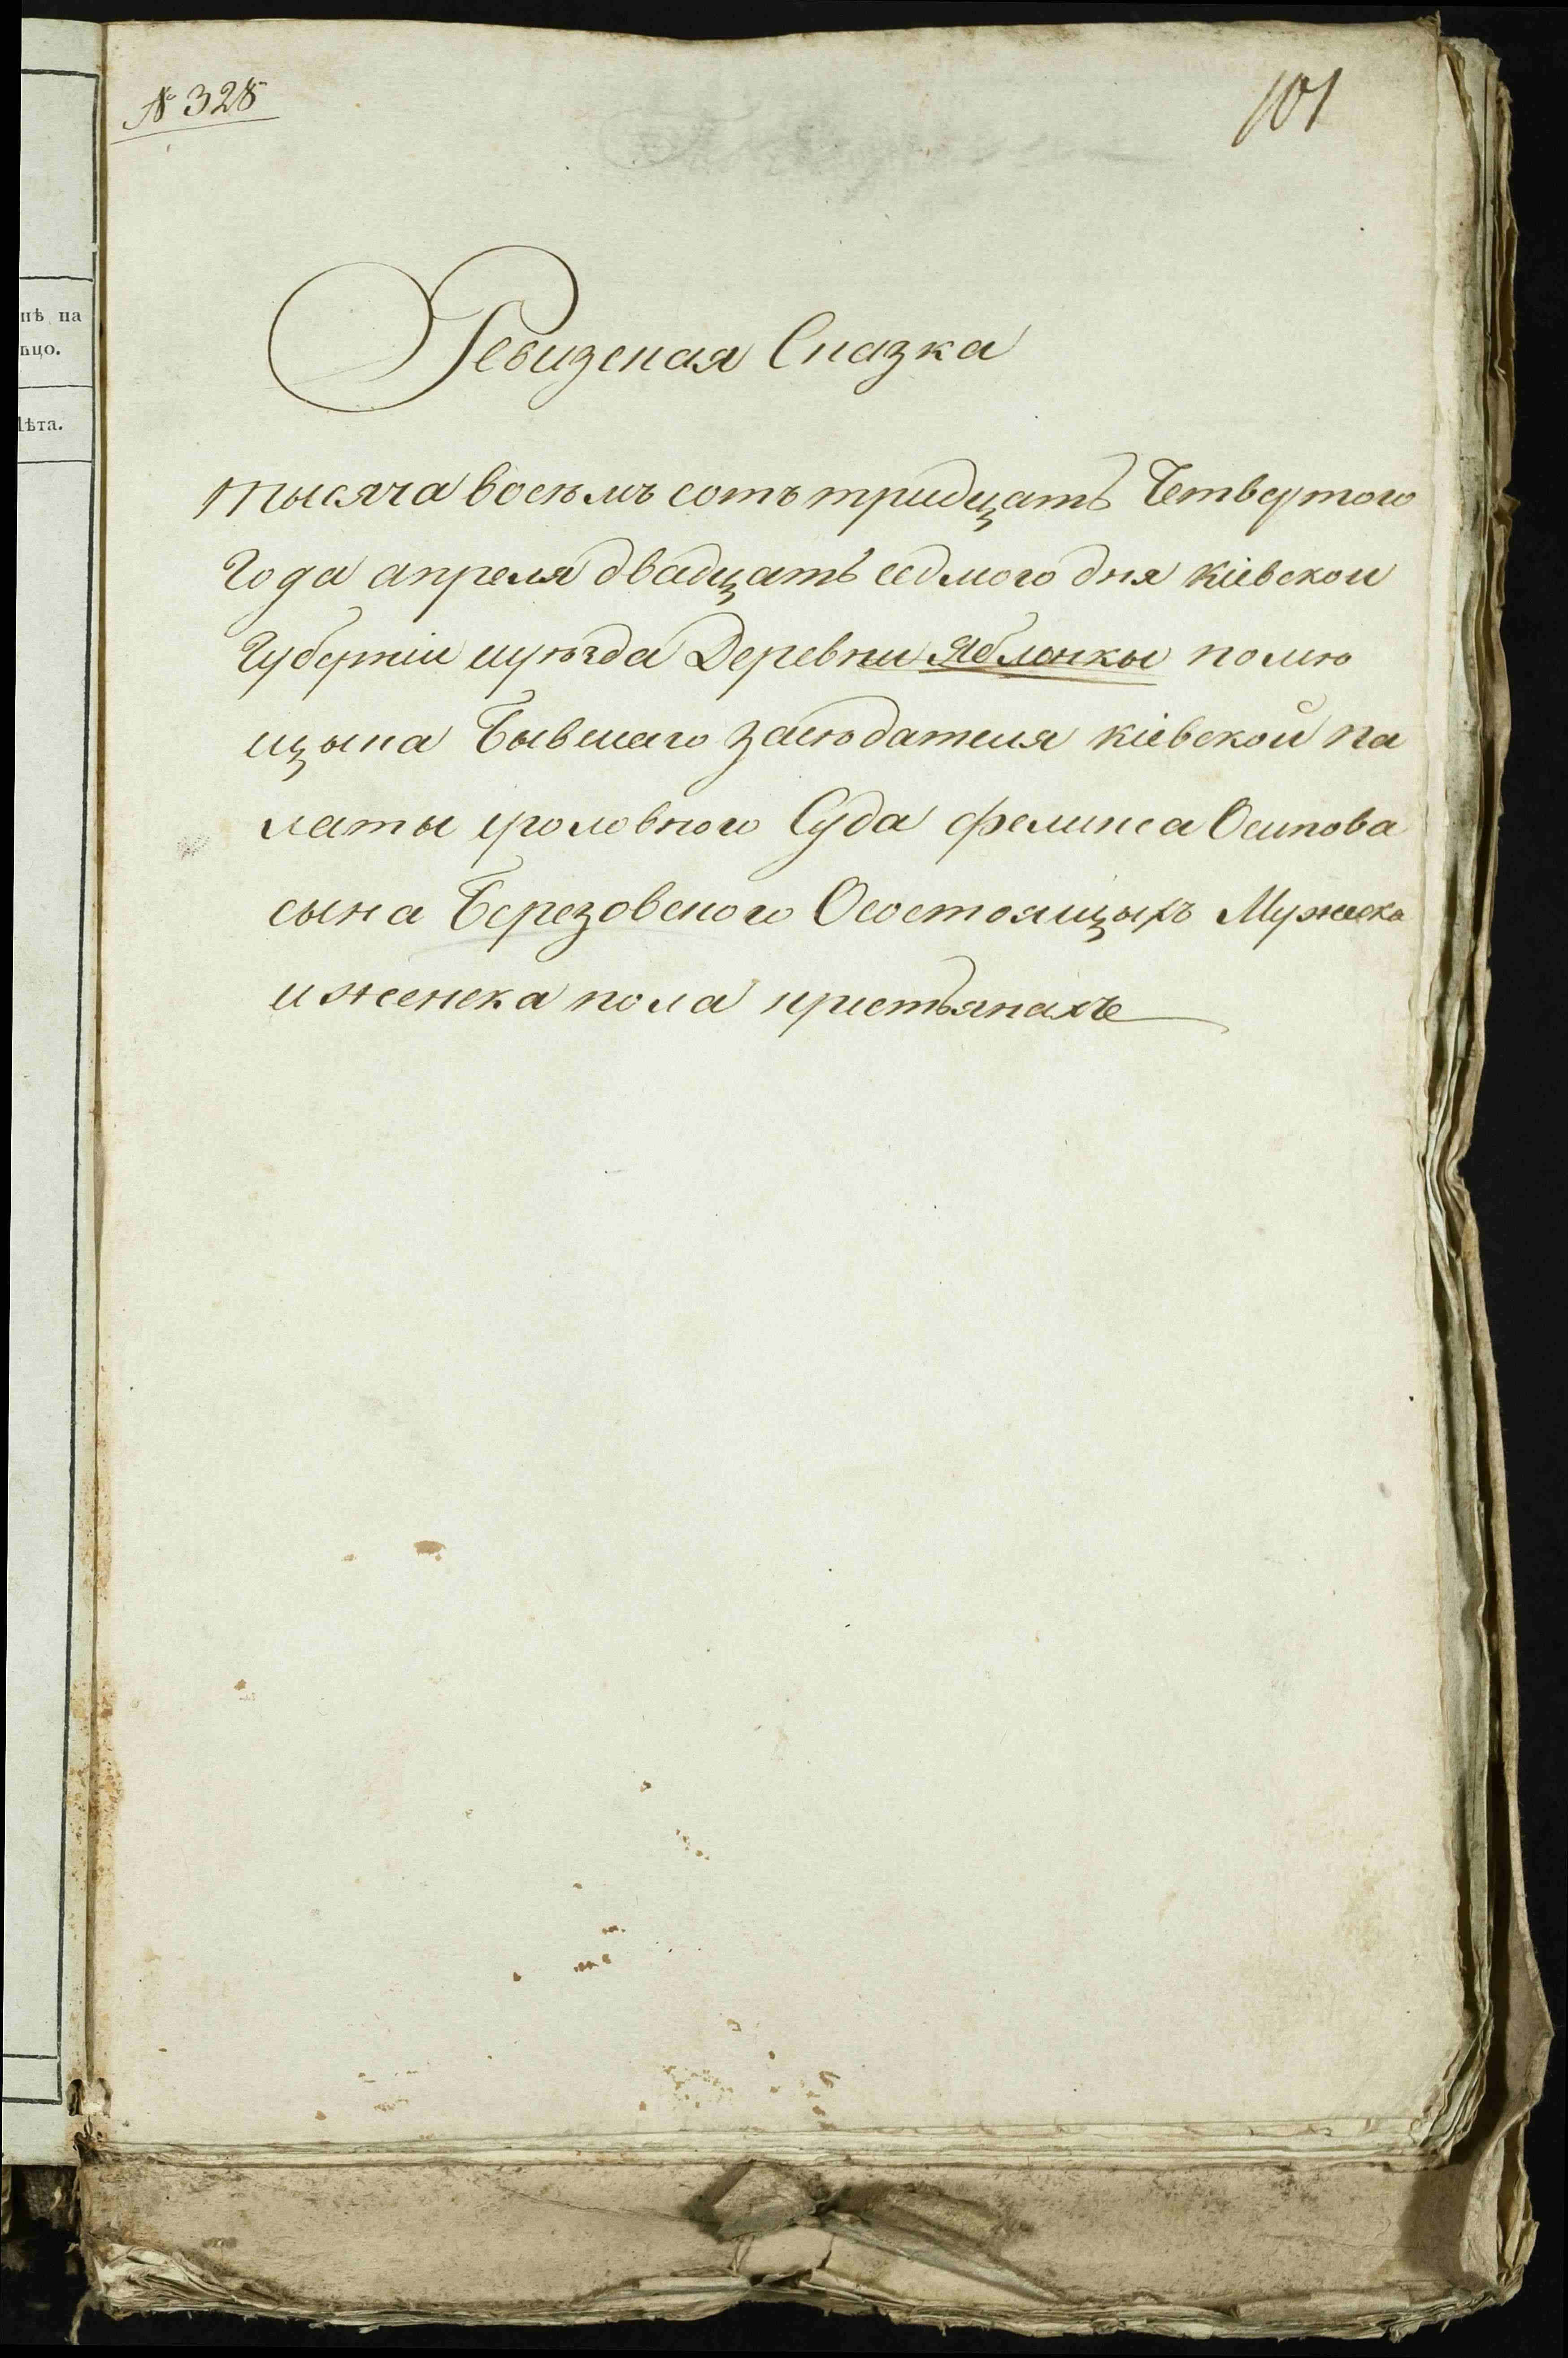 № 328
101
нѣ на
ицо.
Лѣта.
Ревизская Сказка
тысяча восемъ сотъ тридцать Четвертого
Года апреля двадцать седмого дня Кіевской
Губерніи иуѣзда Деревни Яблонки помѣ
щыка Бывшаго Засѣдателя Кіевской Па
латы уголовного Суда Феликса Осипова
сына Березовского Осостоящыхъ Мужеска
иженска пола крестьянахъ